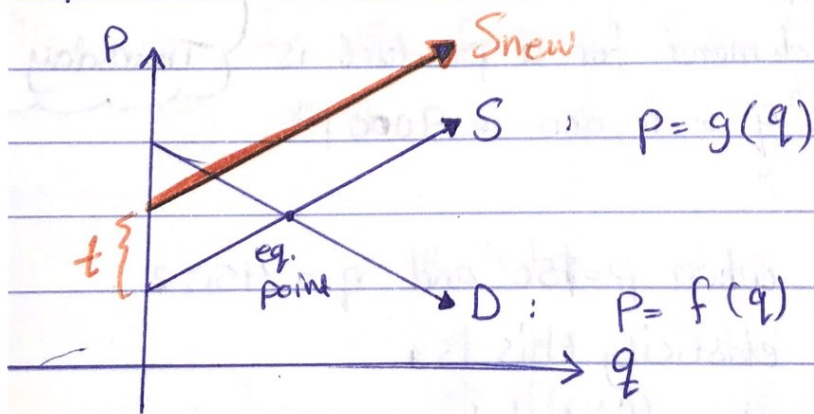 P
Snew
S : P = g(q)
t {
eq.
point
D : P = f(q)
q